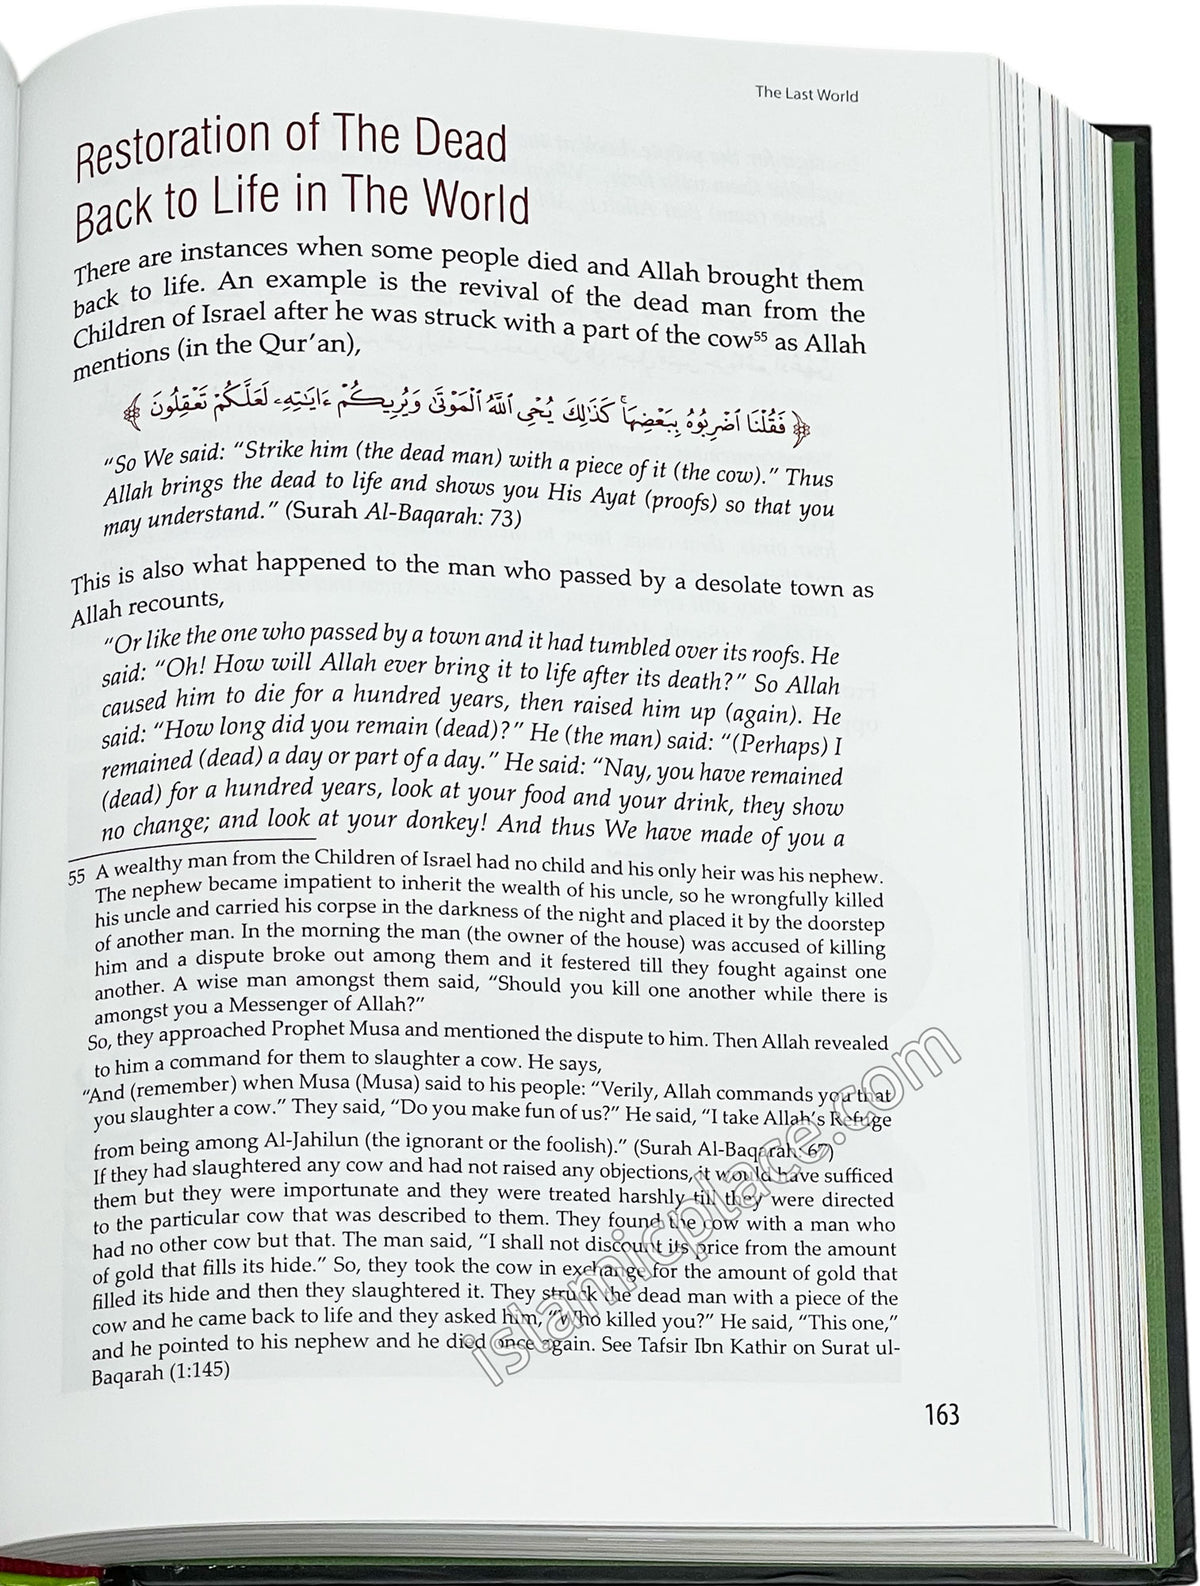 The Last World
Restoration of The Dead
Back to Life in The World
There are instances when some people died and Allah brought them
back to life. An example is the revival of the dead man from the
Children of Israel after he was struck with a part of the cow55 as Allah
mentions (in the Qur'an),
﴿ فَقُلْنَا ٱضْرِبُوهُ بِبَعْضِهَا ۚ كَذَٰلِكَ يُحْىِ ٱللَّهُ ٱلْمَوْتَىٰ وَيُرِيكُمْ ءَايَـٰتِهِۦ لَعَلَّكُمْ تَعْقِلُونَ ﴾
"So We said: "Strike him (the dead man) with a piece of it (the cow)." Thus
Allah brings the dead to life and shows you His Ayat (proofs) so that you
may understand." (Surah Al-Baqarah: 73)
This is also what happened to the man who passed by a desolate town as
Allah recounts,
"Or like the one who passed by a town and it had tumbled over its roofs. He
said: "Oh! How will Allah ever bring it to life after its death?" So Allah
caused him to die for a hundred years, then raised him up (again). He
said: "How long did you remain (dead)?" He (the man) said: "(Perhaps) I
remained (dead) a day or part of a day." He said: "Nay, you have remained
(dead) for a hundred years, look at your food and your drink, they show
no change; and look at your donkey! And thus We have made of you a
55 A wealthy man from the Children of Israel had no child and his only heir was his nephew.
The nephew became impatient to inherit the wealth of his uncle, so he wrongfully killed
his uncle and carried his corpse in the darkness of the night and placed it by the doorstep
of another man. In the morning the man (the owner of the house) was accused of killing
him and a dispute broke out among them and it festered till they fought against one
another. A wise man amongst them said, "Should you kill one another while there is
amongst you a Messenger of Allah?"
So, they approached Prophet Musa and mentioned the dispute to him. Then Allah revealed
to him a command for them to slaughter a cow. He says,
"And (remember) when Musa (Musa) said to his people: "Verily, Allah commands you that
you slaughter a cow." They said, "Do you make fun of us?" He said, "I take Allah's Refuge
from being among Al-Jahilun (the ignorant or the foolish)." (Surah Al-Baqarah: 67)
If they had slaughtered any cow and had not raised any objections, it would have sufficed
them but they were importunate and they were treated harshly till they were directed
to the particular cow that was described to them. They found the cow with a man who
had no other cow but that. The man said, "I shall not discount its price from the amount
of gold that fills its hide." So, they took the cow in exchange for the amount of gold that
filled its hide and then they slaughtered it. They struck the dead man with a piece of the
cow and he came back to life and they asked him, "Who killed you?" He said, "This one,"
and he pointed to his nephew and he died once again. See Tafsir Ibn Kathir on Surat ul-
Baqarah (1:145)
islamicplace.com
163